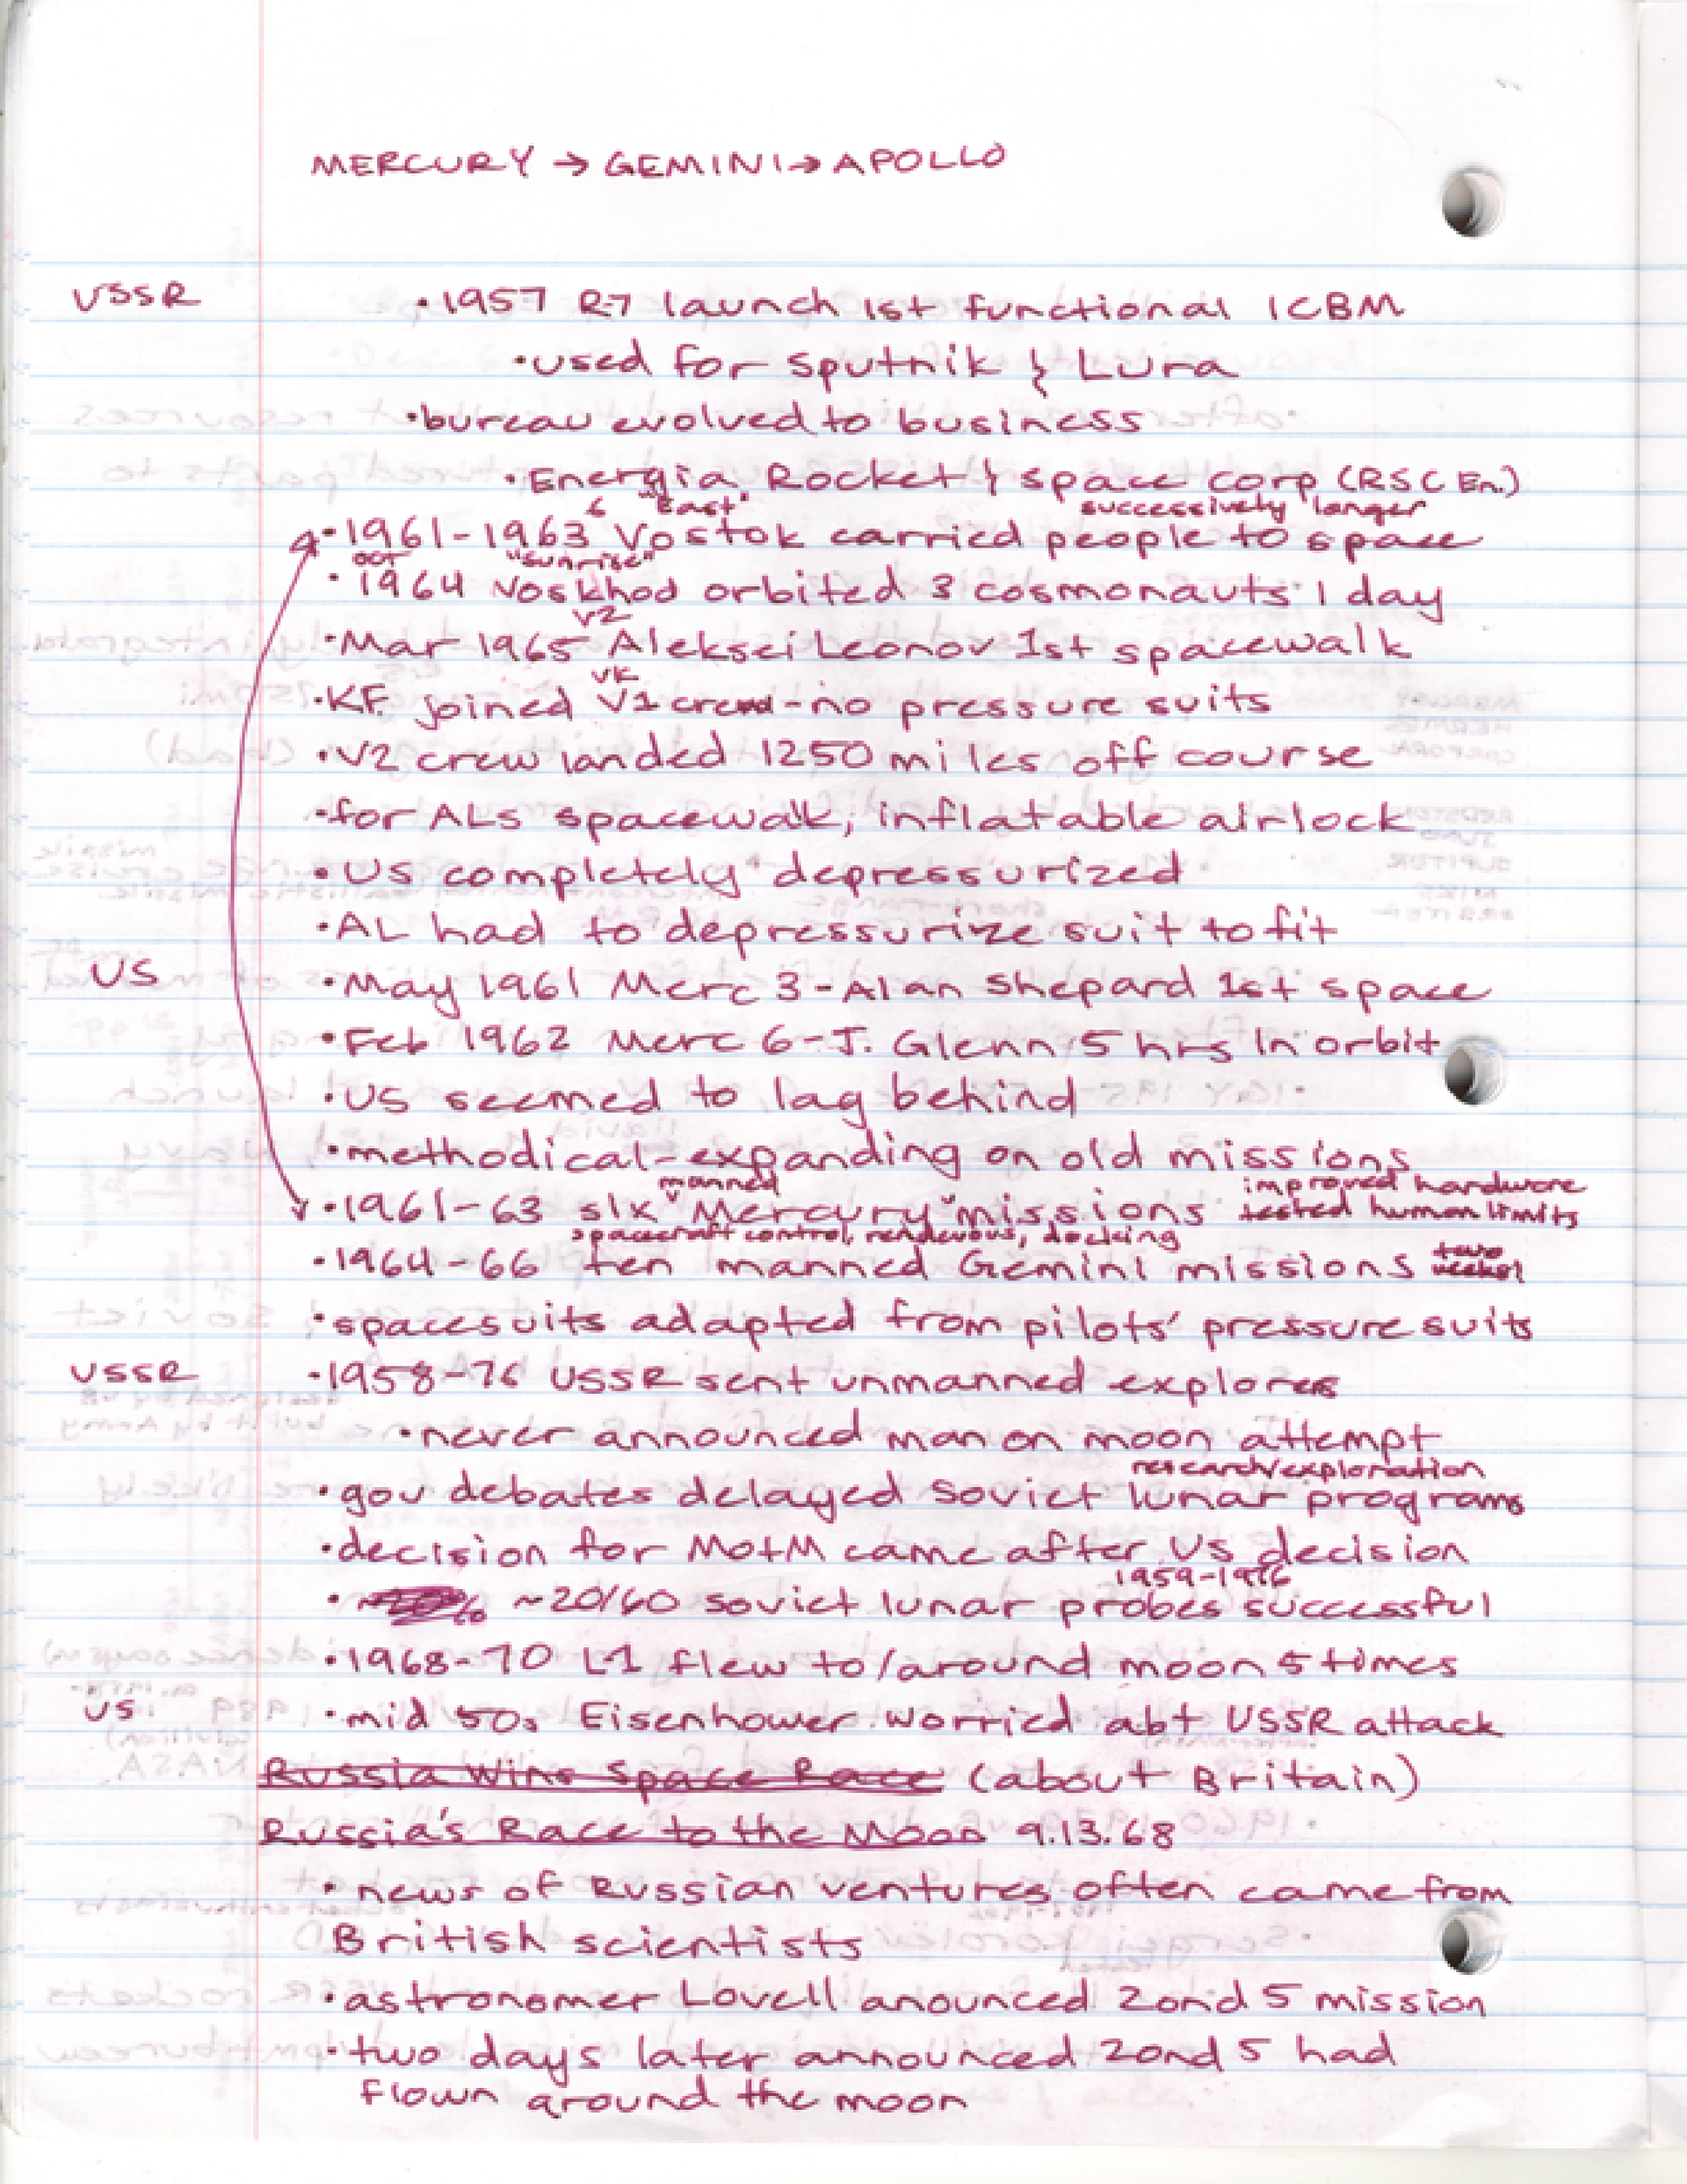 MERCURY → GEMINI → APOLLO
USSR
• 1957 R-7 launch 1st functional ICBM
• used for Sputnik & Luna
• bureau evolved to business
• Energia Rocket & Space Corp (RSC En.)
6 "East" successively longer
• 1961-1963 Vostok carried people to space
oct "sunrise"
• 1964 Voskhod orbited 3 cosmonauts 1 day
V2
• Mar 1965 Aleksei Leonov 1st spacewalk
VK
• KF joined V1 crew - no pressure suits
• V2 crew landed 1250 miles off course
• for ALs spacewalk, inflatable airlock
• US completely depressurized
• AL had to depressurize suit to fit
US
• May 1961 Merc 3 - Alan Shepard 1st space
• Feb 1962 Merc 6 - J. Glenn 5 hrs in orbit
• US seemed to lag behind
• methodical - expanding on old missions
manned improved hardware
• 1961-63 six "Mercury" missions tested human limits
spacecraft control, rendevous, docking
• 1964-66 ten manned Gemini missions two weeks!
• spacesuits adapted from pilots' pressure suits
USSR
• 1958-76 USSR sent unmanned explorers
• never announced man on moon attempt
research/exploration
• gov debates delayed Soviet lunar programs
• decision for MotM came after US decision
1959-1976
• ~20/60 soviet lunar probes successful
• 1968-70 L-1 flew to/around moon 5 times
US
• mid 50s Eisenhower worried abt USSR attack
Russia Wins Space Race (about Britain)
Russia's Race to the Moon 9.13.68
• news of Russian ventures often came from
British scientists
• astronomer Lovell anounced Zond 5 mission
• two days later announced Zond 5 had
flown around the moon